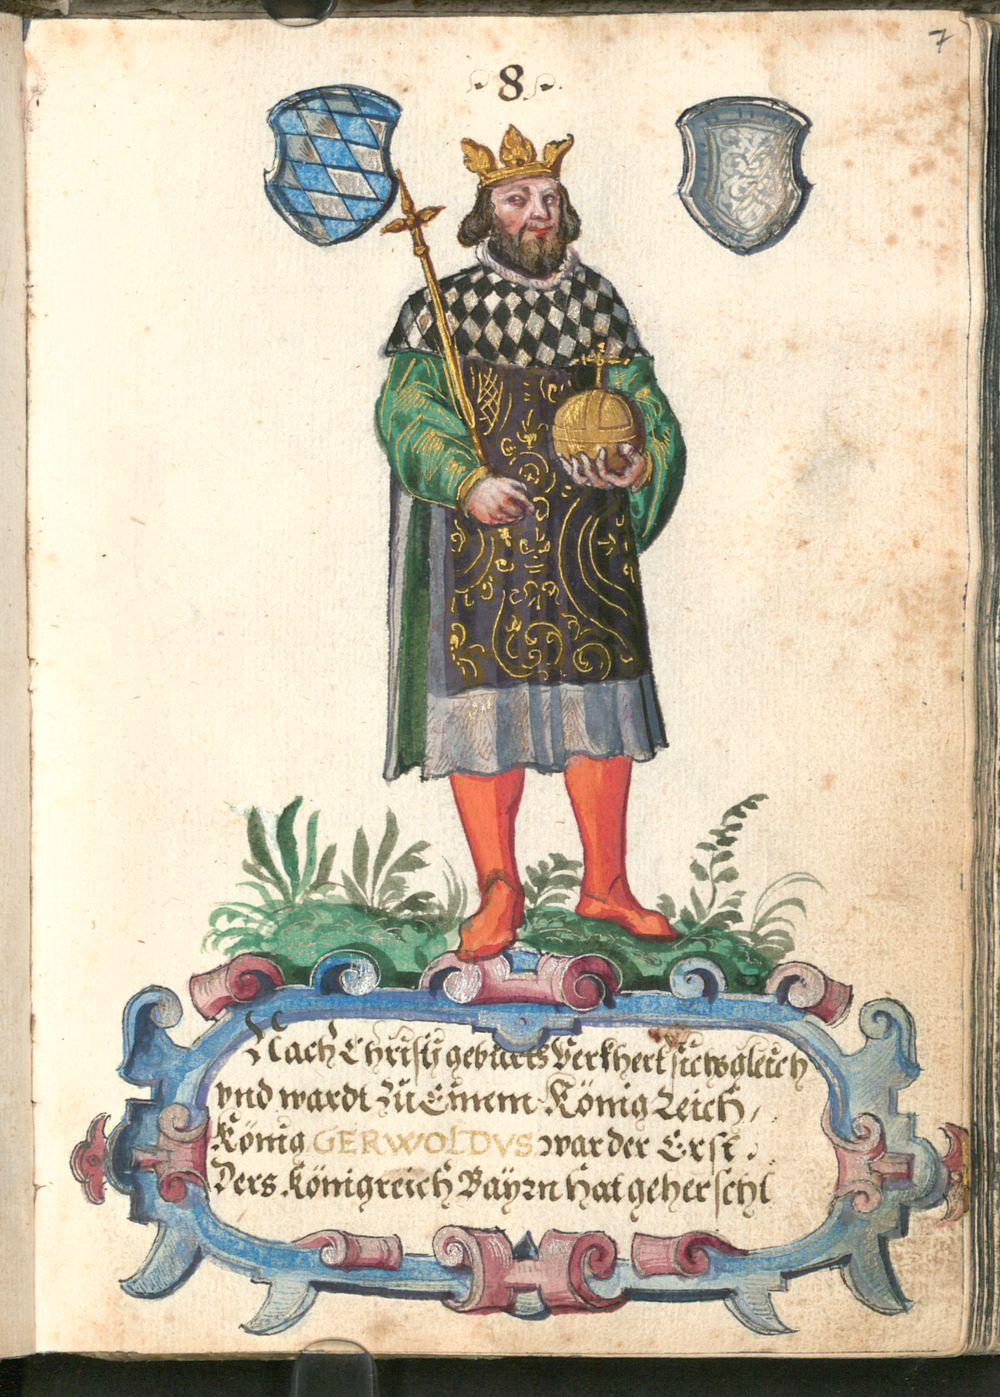 7
8
Nach Christi geburts Verkhert sich's gleich
vnd wardt zu Einem König Reich,
König GERWOLDVS war der Erst.
Ders Königreich Bayrn hat geherscht